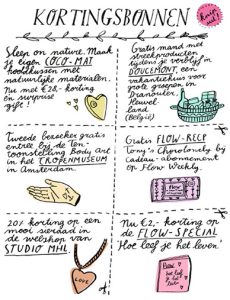 KORTINGSBONNEN
Knip uit!
Sleep on nature. Maak
je eigen COCO-MAT
hoofdkussen met
natuurlijke materialen.
Nu met €28,- korting
en surprise
gift!
Gratis mand met
streekproducten
tijdens je verblijf in
DOUCEMONT, een
vakantiehuis voor
grote groepen in
Dranouter,
Heuvel-
land
(België)
Tweede bezoeker gratis
entree bij de ten-
toonstelling Body Art
in het TROPENMUSEUM
in Amsterdam.
Gratis FLOW-REEP
Tony's Chocolonely bij
cadeau-abonnement
op Flow Weekly.
20% korting op een
mooi sieraad in
de webshop van
STUDIO MHL.
Nu €2,- korting op
de FLOW-SPECIAL
'Hoe leef je het leven.'
FLOW
LOVE